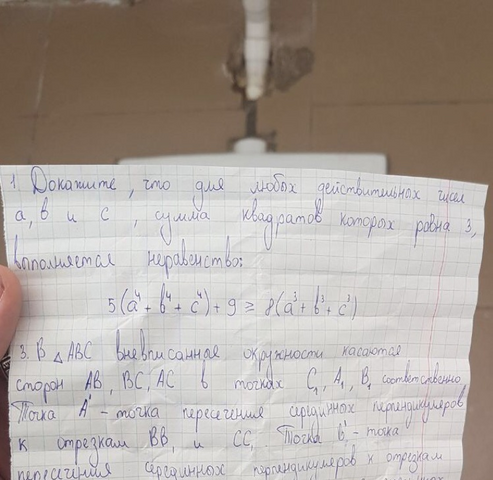 1. Докажите, что для любых действительных чисел
a, b и c, сумма квадратов которых равна 3,
выполняется неравенство:
5(a⁴ + b⁴ + c⁴) + 9 ≥ 8(a³ + b³ + c³)
3. В △ ABC вневписанные окружности касаются
сторон AB, BC, AC в точках C₁, A₁, B₁ соответственно
Точка A' - точка пересечения серединных перпендикуляров
к отрезкам BB₁ и CC₁. Точка B' - точка
пересечения серединных перпендикуляров к отрезкам